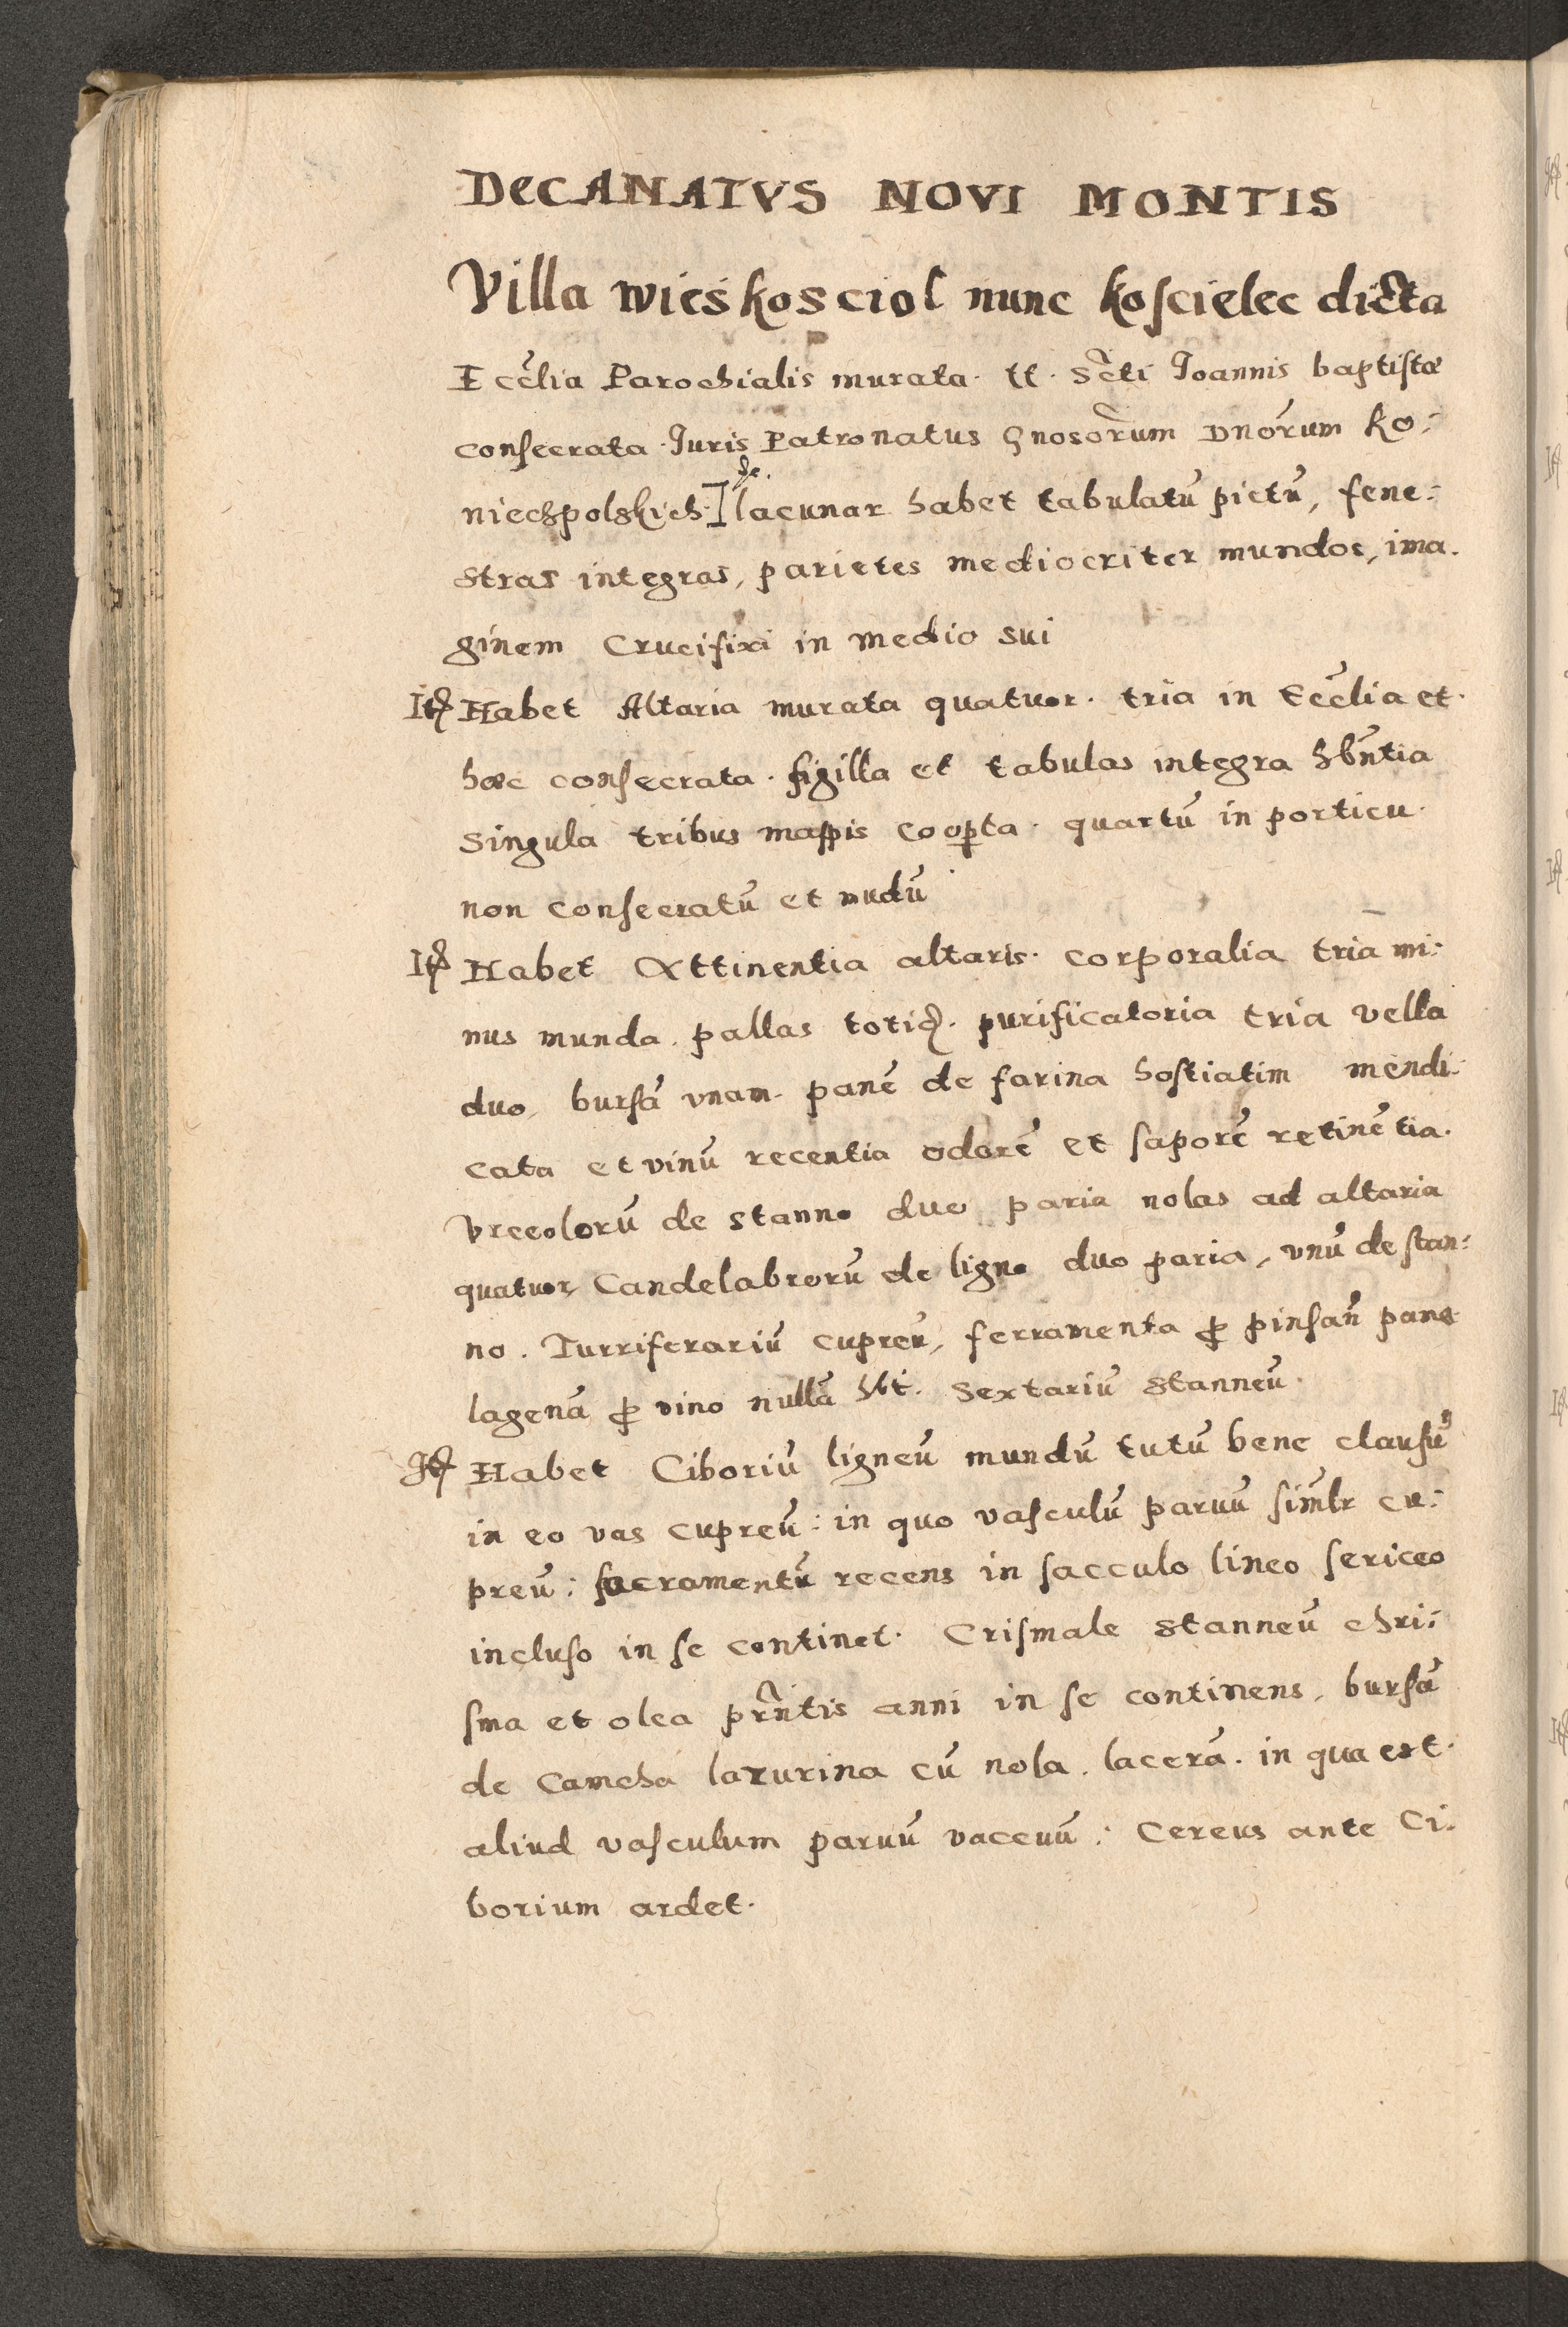 DECANATVS NOVI MONTIS
Villa wieskosciol nunc koscielec dicta
Eccĺia Parochialis murata. tt. Sc̃ti Joannis baptistæ
consecrata. Juris Patronatus Gnosorum Dnórum Ko:
niechpolskich. de. lacunar habet tabulatū pictū, fene:
stras integras, parietes mediocriter mundos, ima.
ginem Crucifixi in medio sui
Itē Habet Altaria murata quatuor. tria in Eccĺia et.
hæc consecrata. sigilla et tabulas integra hb̄ntia
singula tribus mappis coopta. quartū in porticu.
non consecratū et nudū
Itē Habet Attinentia altaris. corporalia tria mi:
nus munda. pallas totid. purificatoria tria vella
duo. bursā vnam. panē de farina hostiatim mendi:
cata et vinū recentia odorē et saporē retinētia.
Vrceolorū de stanno duo paria nolas ad altaria
quatuor, Candelabrorū de ligno duo paria, vnū de stan:
no. Turriferariū cupreū, ferramenta ꝓ pinsañ pane
lagenā ꝓ vino nullā hb̄t. sextariū stanneū.
Itē Habet Ciboriū ligneū mundū tutū bene clausū
in eo vas cupreū: in quo vasculū paruū simlr cu:
preū: sacramentū recens in sacculo lineo sericeo
incluso in se continet. Crismale stanneū chri:
sma et olea pr̃ntis anni in se continens, bursā
de Camcha lazurina cū nola. lacerā. in qua est.
aliud vasculum paruū vacuū: Cereus ante Ci:
borium ardet.